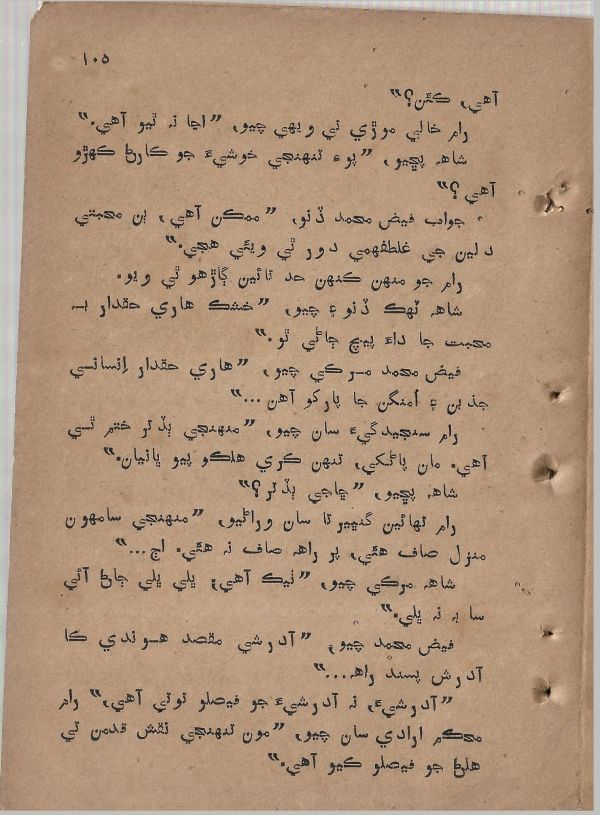 ١٠٥
آهي، ڪٿن؟“
رام خالي موڙي تي ويهي چيو، ”اڃا نہ ٿيو آهي.“
شاهہ پڇيو، ”پوءِ تنهنجي خوشيءَ جو ڪارڻ ڪهڙو
آهي؟“
جواب فيض محمد ڏنو، ”ممڪن آهي، ٻن محبتي
دلين جي غلطفهمي دور ٿي ويئي هجي.“
رام جو منهن ڪنهن حد تائين ڳاڙهو ٿي ويو.
شاهہ ٽهڪ ڏنو ۽ چيو، ”خشڪ هاري حقدار بہ
محبت جا داءَ پيچ ڄاڻي ٿو.“
فيض محمد مرڪي چيو، ”هاري حقدار اِنساني
جذبن ۽ اُمنگن جا پارکو آهن...“
رام سنجيدگيءَ سان چيو، ”منهنجي ٻڏتر ختم ٿي
آهي. مان پاڻکي، تنهن ڪري هلڪو پيو ڀانيان.“
شاهہ پڇيو، ”ڇاجي ٻڏتر؟“
رام تهائين گنڀيرتا سان وراڻيو، ”منهنجي سامهون
منزل صاف هئي، پر راهہ صاف نہ هئي. اڄ...“
شاهہ مرڪي چيو، ”ٺيڪ آهي؛ ڀلي ڀلي ڄاڻ آئي
سا بہ نہ ڀلي.“
فيض محمد چيو، ”آدرشي مقصد هوندي ڪا
آدرش پسند راهہ....“
”آدرشيءَ، نہ آدرشيءَ جو فيصلو ٿوٿي آهي،“ رام
محڪم ارادي سان چيو، ”مون تنهنجي نقش قدمن تي
هلڻ جو فيصلو ڪيو آهي.“